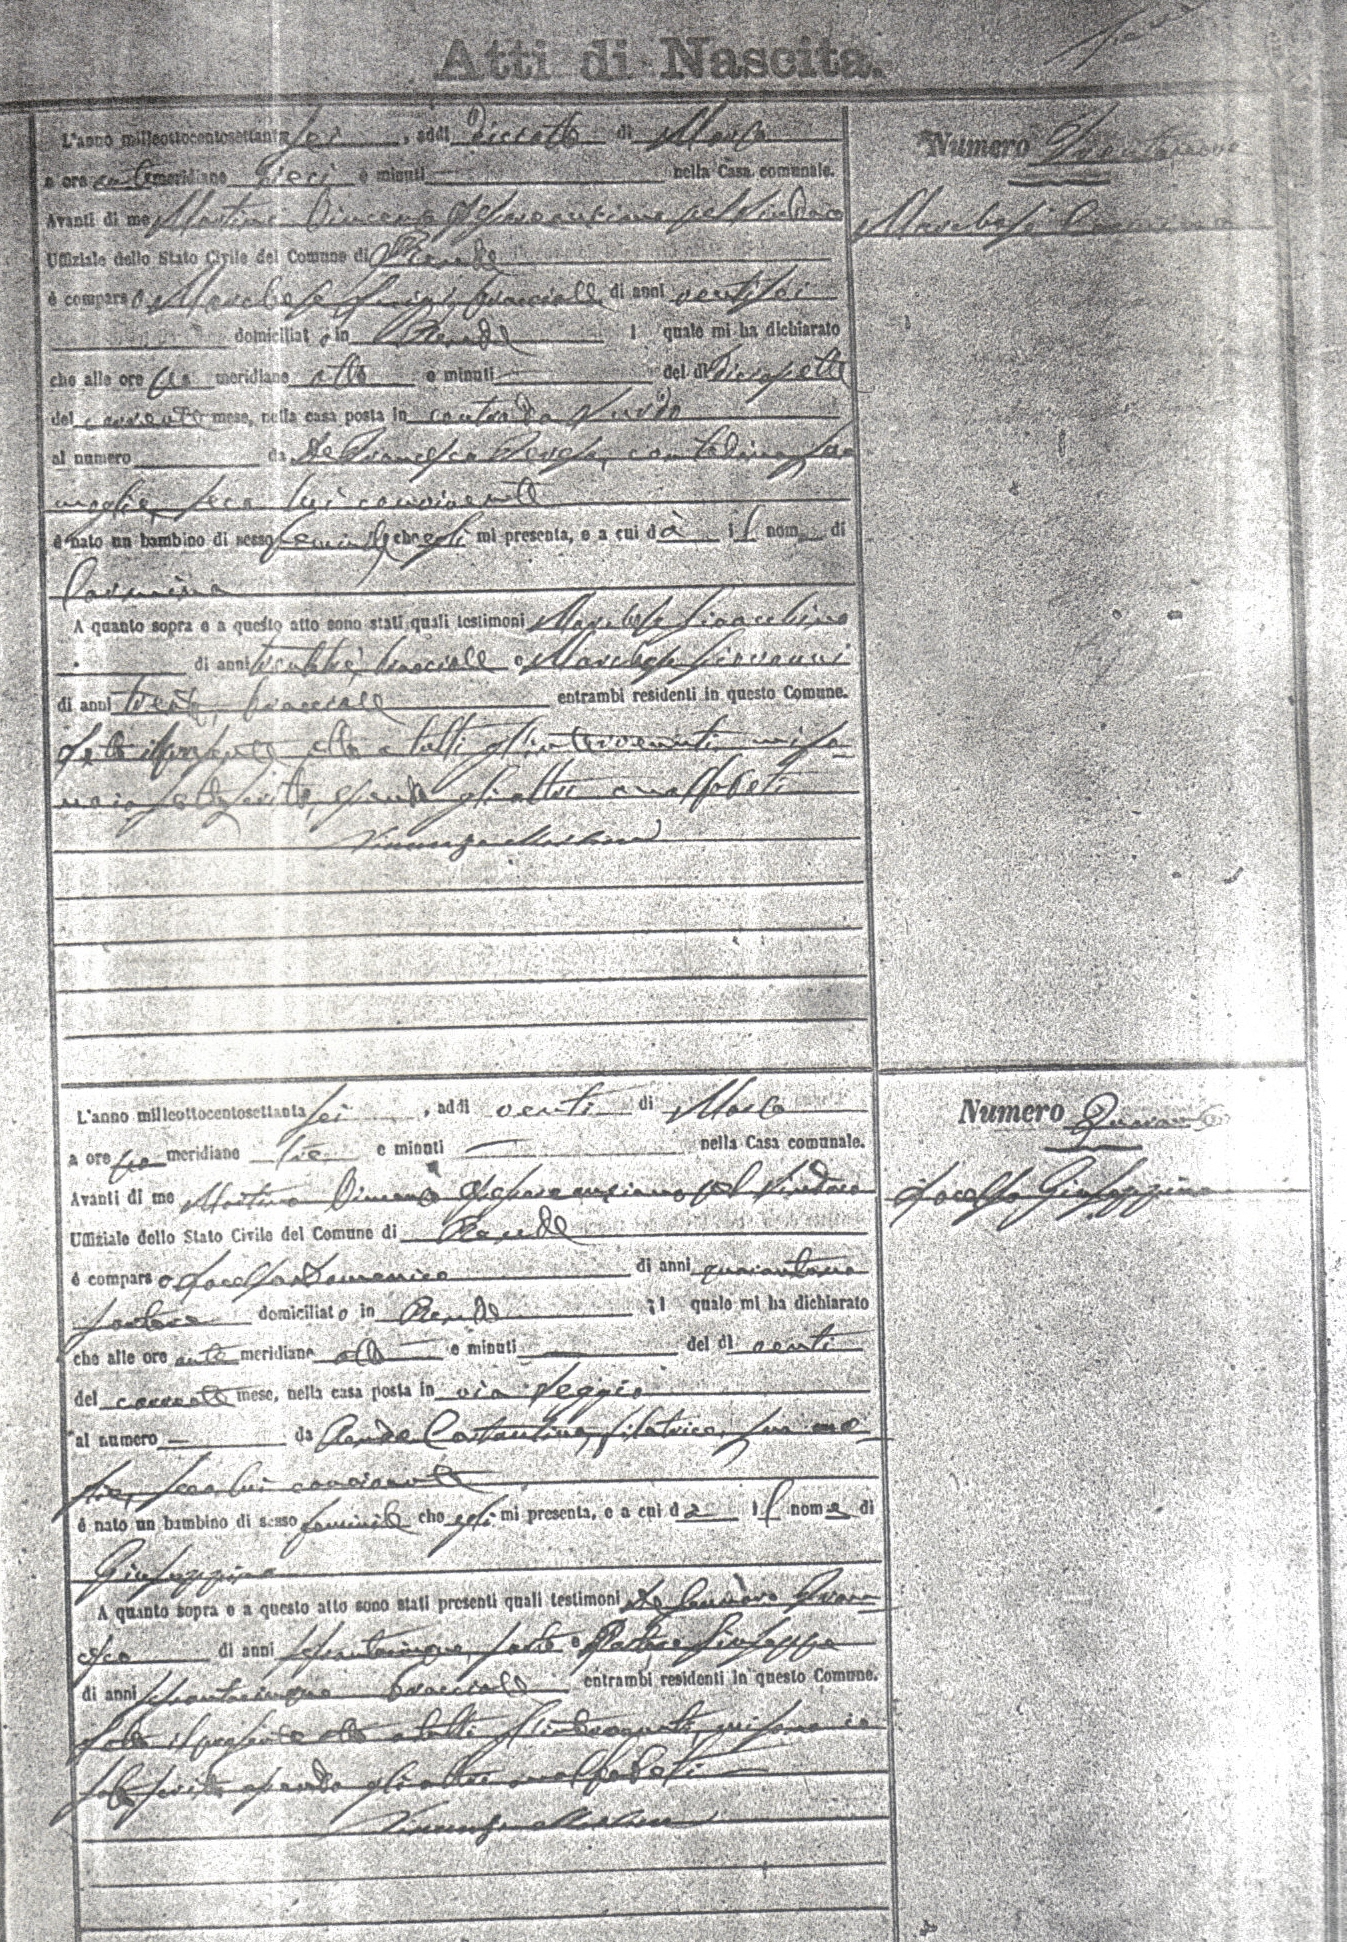 Atti di Nascita.
L'anno milleottocentosettanta sei, addì diciotto di Marzo
a ore antimeridiane Dieci e minuti nella Casa comunale.
Numero Trentanove
Avanti di me Martini Vincenzo Assessore anziano pel Sindaco
Marchese Carmina
Uffiziale dello Stato Civile del Comune di Rende
è comparso Marchese Luigi, bracciale di anni ventisei
domiciliato in Rende il quale mi ha dichiarato
che alle ore po meridiane otto e minuti del dì diciasette
del corrente mese, nella casa posta in contrada
al numero da De Francesca contadina, sua
moglie, seco lui convivente
è nato un bambino di sesso feminile che egli mi presenta, e a cui dà il nome di
Carmina
A quanto sopra e a questo atto sono stati quali testimoni Marchese Gioacchino
di anni trentatre, bracciale e Marchese Giovanni
di anni trenta, bracciale entrambi residenti in questo Comune.
Letto il presente atto a tutti gl'intervenuti, mi so
no io sottoscritto, essendo gli altri analfabeti
Vincenzo Martini
L'anno milleottocentosettanta sei, addì venti di Marzo
Numero Quaranta
a ore po meridiane tre e minuti nella Casa comunale.
Avanti di me Martini Vincenzo Assessore anziano pel Sindaco
Giuseppina
Uffiziale dello Stato Civile del Comune di Rende
è comparso Domenico di anni quarantuno
domiciliato in Rende il quale mi ha dichiarato
che alle ore antemeridiane otto e minuti del dì venti
del corrente mese, nella casa posta in via Seggio
al numero da Rende Costantina, filatrice, sua mo
glie, seco lui convivente
è nato un bambino di sesso feminile che egli mi presenta, e a cui dà il nome di
Giuseppina
A quanto sopra e a questo atto sono stati presenti quali testimoni De Gennaro Fran
cesco di anni sessantacinque, sarto e Pastore Giuseppe
di anni bracciale entrambi residenti in questo Comune.
Letto il presente atto a tutti gl'intervenuti, mi sono io
sottoscritto essendo gli altri analfabeti
Vincenzo Martini